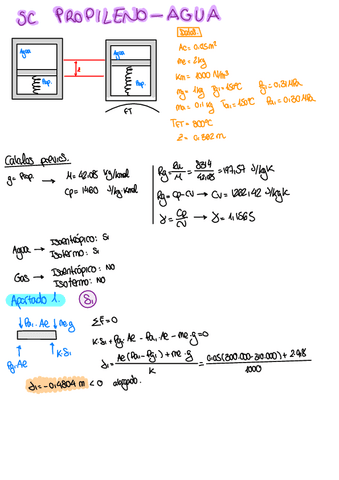 SC PROPILENO-AGUA
Datos:
Agua
Prop.
z
Agua
Prop.
FT
Ac = 0.05 m²
me = 2 kg
Km = 1000 N/m
mg = 1 kg Tg1 = 150ºC Pg1 = 0.31 MPa
ma = 0.1 kg Ta1 = 150ºC Pa1 = 0.30 MPa
TFT = 300ºC
z = 0.382 m
Cálculos previos.
g = Prop. → M = 42.08 kg/kmol
Cp = 1480 J/kg·K
Rg = Ru/M = 8314/42.08 = 197,57 J/kgK
Rg = Cp - Cv → Cv = 1282,42 J/kgK
γ = Cp/Cv → γ = 1,1565
Agua → Isoentrópico: Sí
Isotermo: Sí
Gas → Isoentrópico: NO
Isotermo: NO
Apartado 1. δ1
↓Pa1·Ae ↓me·g
↑Pg1·Ae ↑K·δ1
ΣF = 0
K·δ1 + Pg1·Ae - Pa1·Ae - me·g = 0
δ1 = Ae(Pa1 - Pg1) + me·g / K = 0.05(300.000 - 310.000) + 2·9.8 / 1000
δ1 = -0,4804 m < 0 alargado.